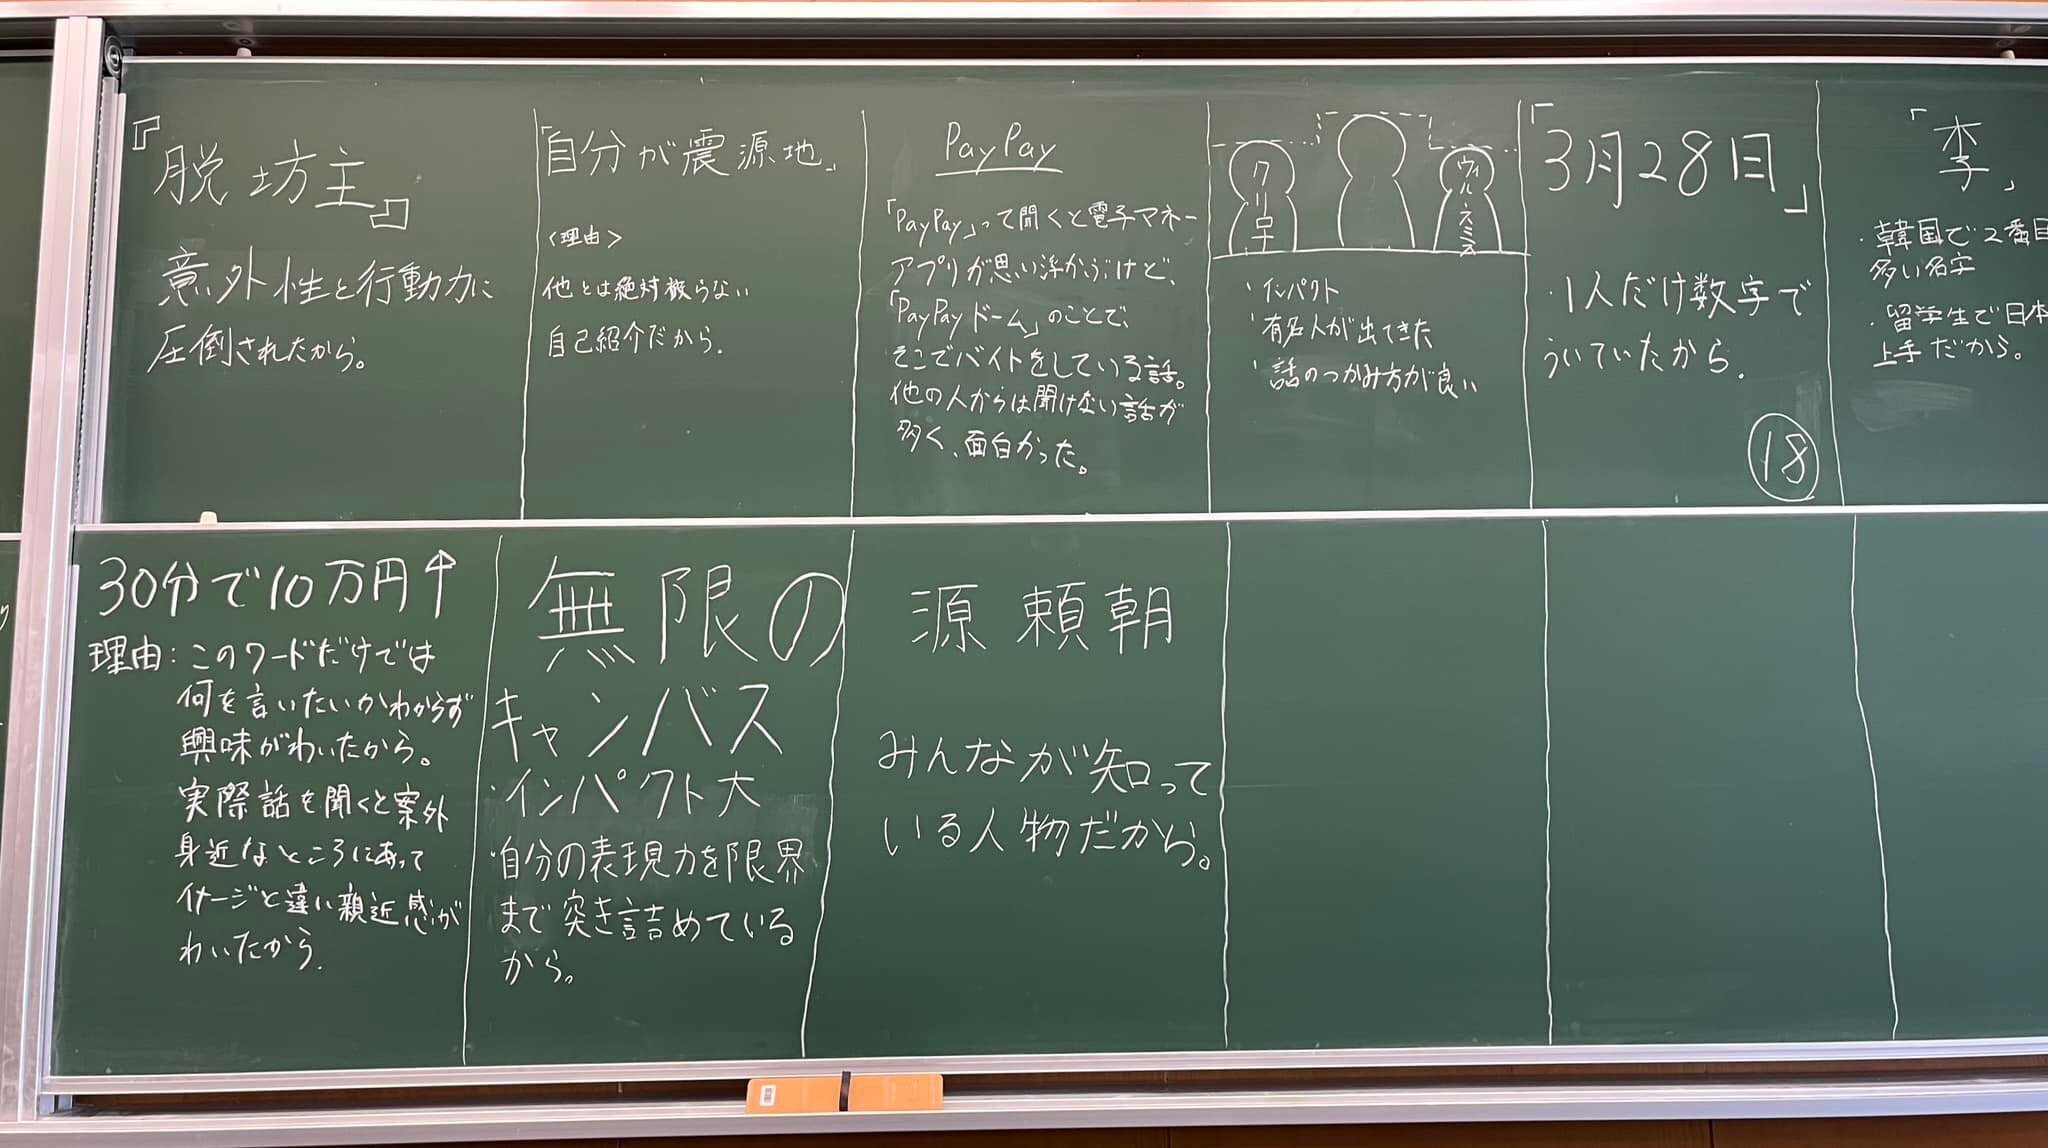 『脱坊主』
意外性と行動力に
圧倒されたから。
「自分が震源地」
<理由>
他とは絶対被らない
自己紹介だから.
PayPay
「PayPay」って聞くと電子マネー
アプリが思い浮かぶけど、
「PayPayドーム」のことで、
そこでバイトをしている話。
他の人からは聞けない話が
多く、面白かった。
ウィル・スミス
・インパクト
・有名人が出てきた
・話のつかみ方が良い
「3月28日」
・1人だけ数字で
ういていたから.
18
「李」
・韓国で2番目
多い名字
・留学生で日本
上手だから。
30分で10万円↑
理由:このワードだけでは
何を言いたいかわからず
興味がわいたから。
実際話を聞くと案外
身近なところにあって
イメージと違い親近感が
わいたから.
無限の
キャンバス
・インパクト大
・自分の表現力を限界
まで突き詰めている
から。
源頼朝
みんなが知って
いる人物だから。